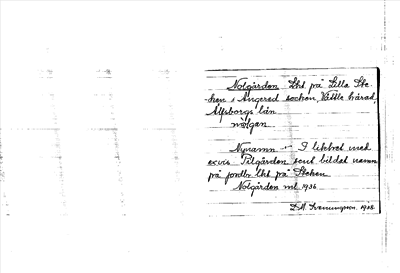 Nolgården Lht på Lilla Ste-
ken i Angered socken, Vättle härad,
Älfsborgs län
nålgan
Nynamn - I likhet med
exvis Pilgården som bildat namn
på jordbr. lht på Steken
Nolgården ml. 1936
D.A. Svenungsson. 1938.